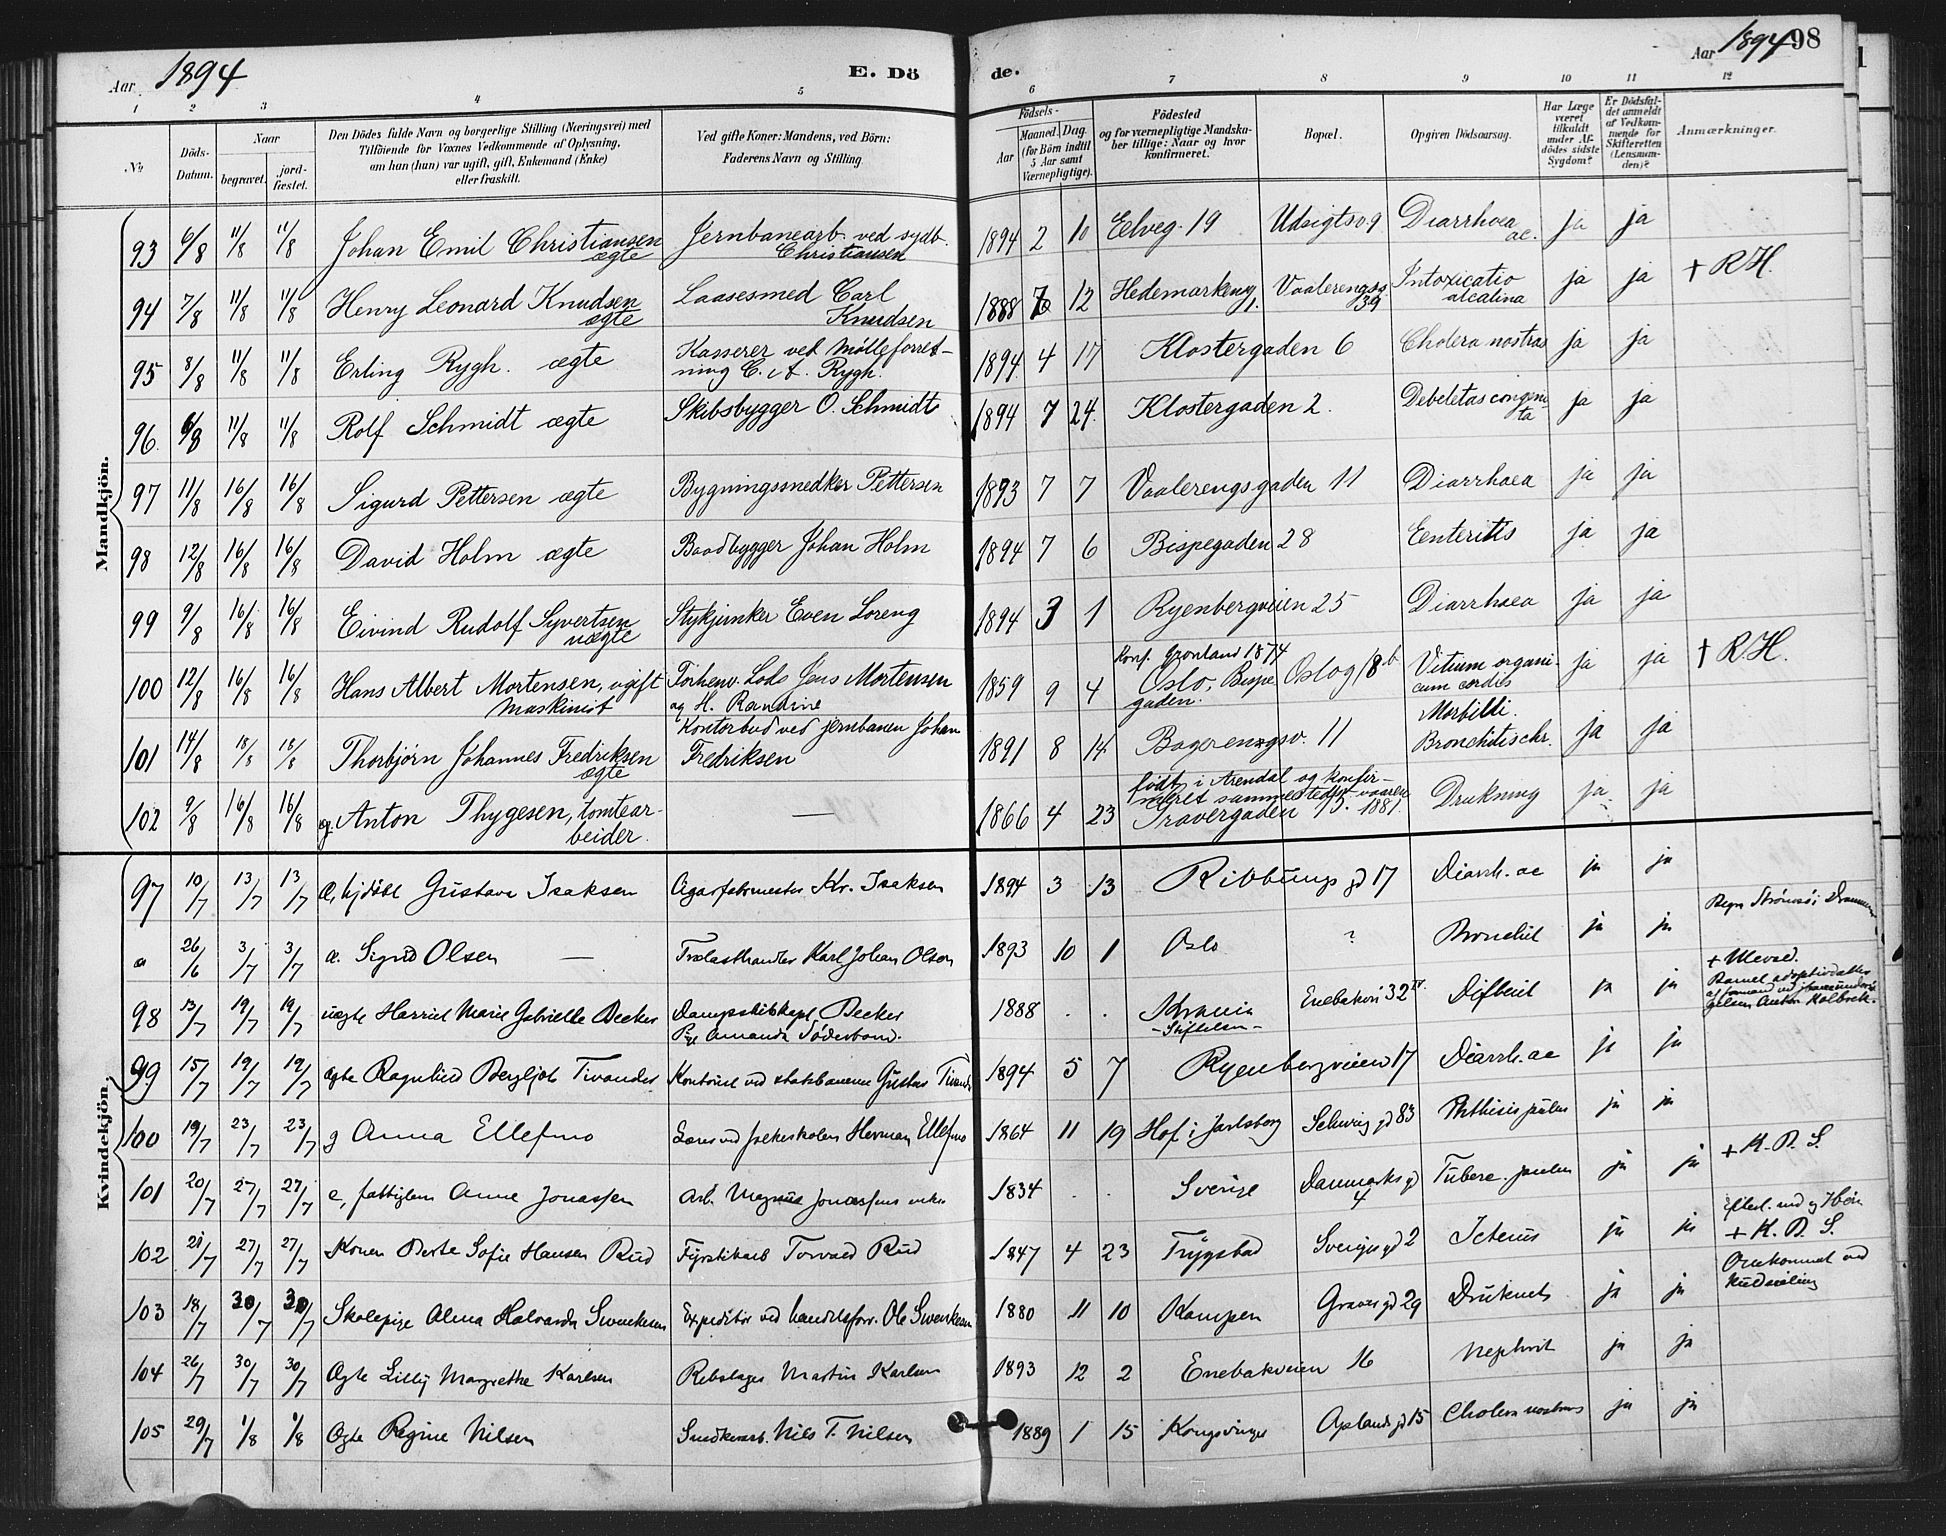 Aar 1894 E. Dö de. Aar 1894 98
1 2 3 4 5 6 7 8 9 10 11 12
No
Döds-Datum.
Naar
begravet.
jord-fæstet.
Den Dödes fulde Navn og borgerlige Stilling (Næringsvei) med
Tilföiende for Voxnes Vedkommende af Oplysning,
om han (hun) var ugift, gift, Enkemand (Enke)
eller fraskilt.
Ved gifte Koner: Mandens, ved Börn:
Faderens Navn og Stilling.
Födsels-
Aar
Maaned. Dag.
(for Börn indtil
5 Aar samt
Værnepligtige).
Födested
og for værnepligtige Mandska-
ber tillige: Naar og hvor
konfirmeret.
Bopæl.
Opgiven Dödsaarsag.
Har Læge
været
tilkaldt
under Af-
dödes sidste
Sygdom?
Er Dödsfal-
det anmeldt
af Vedkom-
mende for
Skifteretten
(Lensman-
den)?
Anmærkninger.
Mandkjön.
93 6/8 11/8 11/8 Johan Emil Christiansen ægte Jernbanearb. ved sydb. Christiansen 1894 2 10 Eelveg. 19 Udsigtsv. 9 Diarrhoea ac. ja ja
94 7/8 11/8 11/8 Henry Leonard Knudsen ægte Laasesmed Carl Knudsen 1888 12 Hedemarkeng. 1. Vaalerengsg. 39 Intoxicatio alcalina ja ja + R.H.
95 8/8 11/8 11/8 Erling Rygh. ægte Kasserer ved Mølleforret-ning C. A. Rygh. 1894 4 17 Klostergaden 6 Cholera nostras ja ja
96 6/8 11/8 11/8 Rolf Schmidt ægte Skibsbygger O. Schmidt 1894 7 24 Klostergaden 2. Debeletas congeni-ta ja ja
97 11/8 16/8 16/8 Sigurd Pettersen ægte Bygningssnedker Pettersen 1893 7 7 Vaalerengsgaden 11 Diarrhoea ja ja
98 12/8 16/8 16/8 David Holm ægte Baadbygger Johan Holm 1894 7 6 Bispegaden 28 Eenteritis ja ja
99 9/8 16/8 16/8 Eivind Rudolf Syvertsen uægte Stykjunker Even Loreng 1894 3 1 Ryenbergveien 25 Diarrhoea ja ja
100 12/8 16/8 16/8 Hans Albert Mortensen, ugift maskinist Forhenv. Lods Jens Mortensen og H. Randine 1859 9 4 Konf. Grønland 1874 Oslo, Bispegaden. Oslog 18 b Vitium organi-cum cordis ja ja + R.H.
101 14/8 18/8 18/8 Thorbjørn Johannes Fredriksen ægte Kontorbud ved jernbanen Johan Fredriksen 1891 8 14 Bagerengsv. 11 Morbilli. Bronchitis chr. ja ja
102 9/8 16/8 16/8 g. Anton Thygesen, tomtear-beider. — 1866 4 23 født i Arendal og konfir-meret sammesteds vaaren 1881. Travergaden 15. Drukning ja ja
Kvindekjön.
97 10/7 13/7 13/7 Gustava Isaksen Cigarfabrmester Kr. Isaksen 1894 3 13 gd 17 Diarrh. ac ja ja
a 26/6 3/7 3/7 æ. Sigrid Olsen — Trælasthandler Karl Johan Olsen 1893 10 1 Oslo ? Bronchit ja ja Begr Strømsö i Drammen
98 13/7 19/7 19/7 uægte Harriet Marie Gabrielle Becker Dampskibskapt. Becker Pige Amanda Söderbom. 1888 . . Krania -Stiftelsen- Enebakv 32 IV. Difterit ja ja + Ullevaal.
99 15/7 19/7 19/7 ægte Ragnhild Bergljot Tivander Kontorist ved statsbanerne Gustav Tivander 1894 5 7 Ryenbergveien 17 Diarrh. ac ja ja
100 19/7 23/7 23/7 g Anna Ellefmo Lærer ved folkeskolen Herman Ellefmo 1864 11 19 Hof i Jarlsberg Schweig gd 83 Phthisis pulm ja ja
101 20/7 27/7 27/7 e, fattiglem Anne Jonassen Arb. Magnus Jonassens enke 1834 . . Sverige Danmarks gd 4 Tuberc. pulm ja ja + K. D. S.
102 21/7 27/7 27/7 Konen Berte Sofie Hansen Rud Fyrstikarb Torvald Rud 1847 4 23 Trygstad Sveriges gd 2 Icterus ja ja Efterl. md og 4 börn + K. D. S.
103 18/7 30/7 30/7 Skolepige Alma Halvarda Svenkesen Expeditör ved handelsforr. Ole Svenkesen 1880 11 10 Kampen Graves gd 29 Druknet ja ja Omkommet ved
104 26/7 30/7 30/7 Ægte Lilly Margrethe Karlsen Rebslager Martin Karlsen 1893 12 2 Enebakveien 16 Nephrit ja ja
105 29/7 1/8 1/8 Ægte Regine Nilsen Snedkerarb. Nils T. Nilsen 1889 1 15 Kongsvinger Oplands gd 15 Cholera nostras ja ja